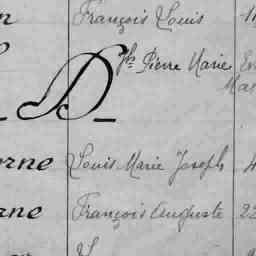 n François Louis
D
Pierre Marie
orne Louis Marie Joseph 4
rne François Auguste 22